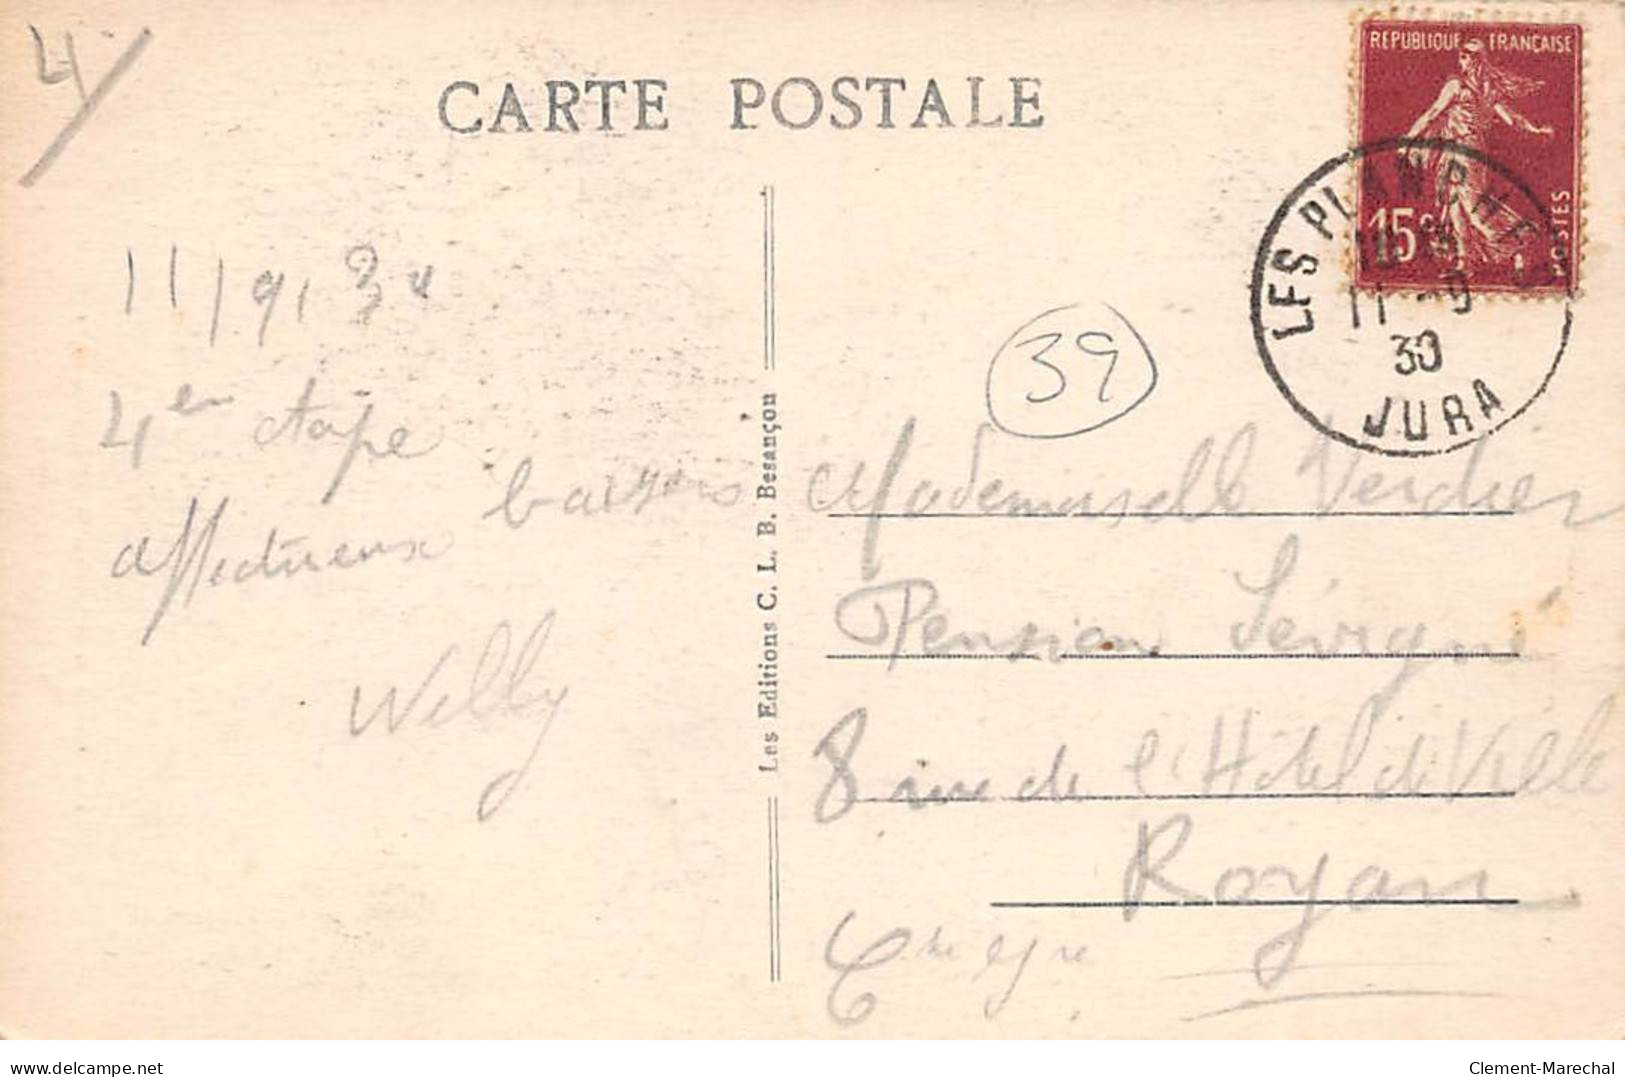 4/
CARTE POSTALE
REPUBLIQUE FRANÇAISE
15c
POSTES
LES PLANCHES
11 -9
30
JURA
39
11/9/30
4em étape
affectueux baisers
Willy
Les Editions C. L. B. Besançon
Mademoiselle Verdier
Pension Sévigné
8 rue de l'Hôtel de Ville
Royan
Chte Infre
delcampe.net
Clement-Marechal